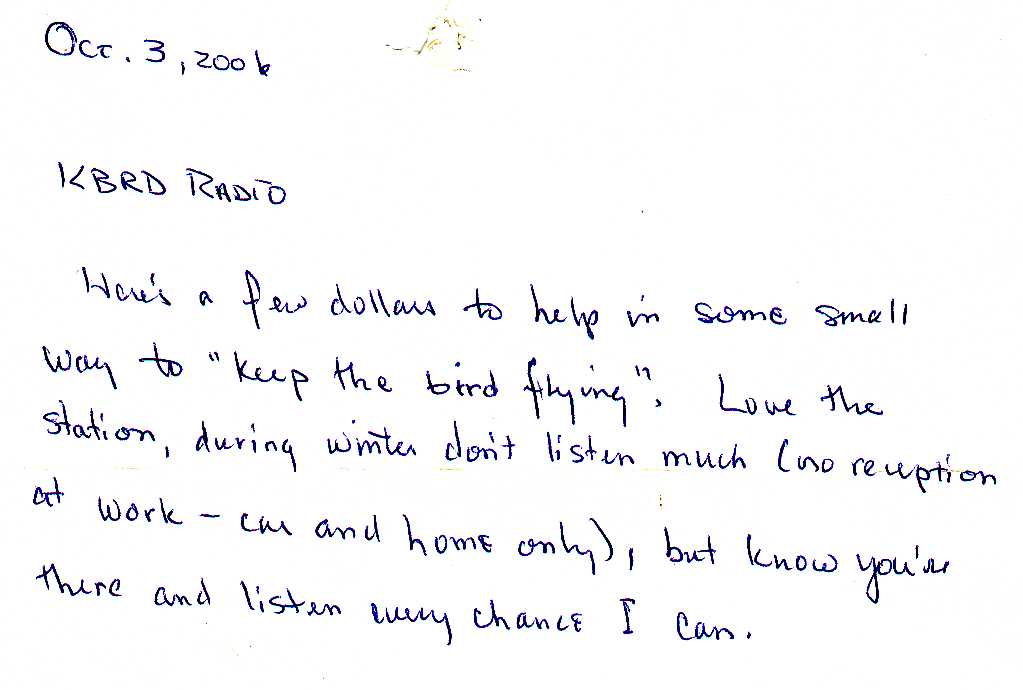 Oct. 3, 2006
KBRD RADIO
Here's a few dollars to help in some small
way to "keep the bird flying". Love the
station, during winter don't listen much (no reception
at work - car and home only), but know you're
there and listen every chance I can.